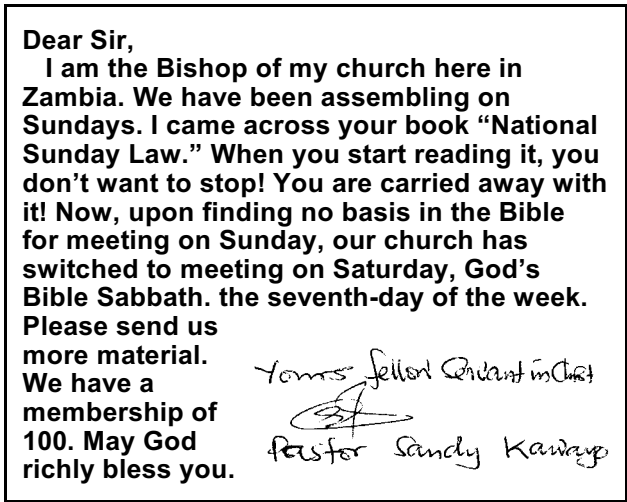 Dear Sir,
I am the Bishop of my church here in
Zambia. We have been assembling on
Sundays. I came across your book “National
Sunday Law.” When you start reading it, you
don’t want to stop! You are carried away with
it! Now, upon finding no basis in the Bible
for meeting on Sunday, our church has
switched to meeting on Saturday, God’s
Bible Sabbath. the seventh-day of the week.
Please send us
more material.
We have a
membership of
100. May God
richly bless you.
Yours fellow Servant in Christ
Pastor Sandy